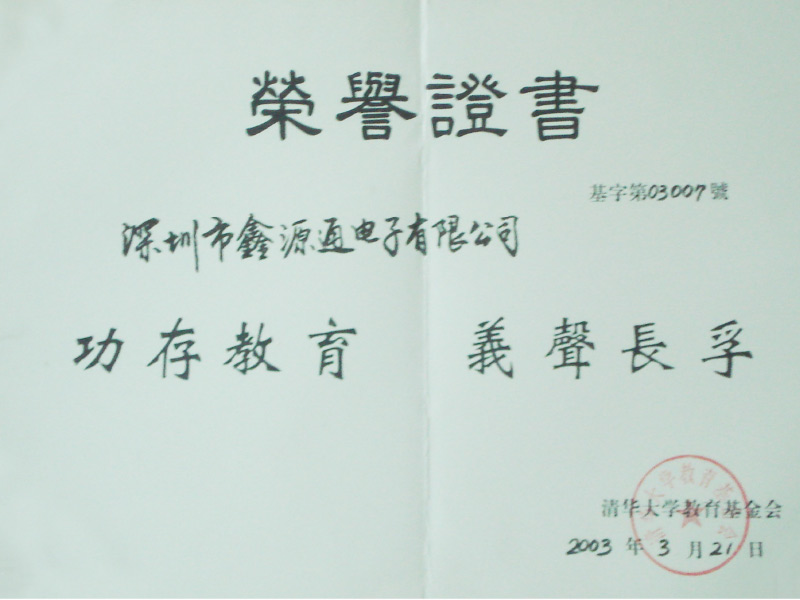 榮譽證書
基字第03007號
深圳市鑫源通电子有限公司
功存教育 義聲長孚
清华大学教育基金会
2003年3月21日